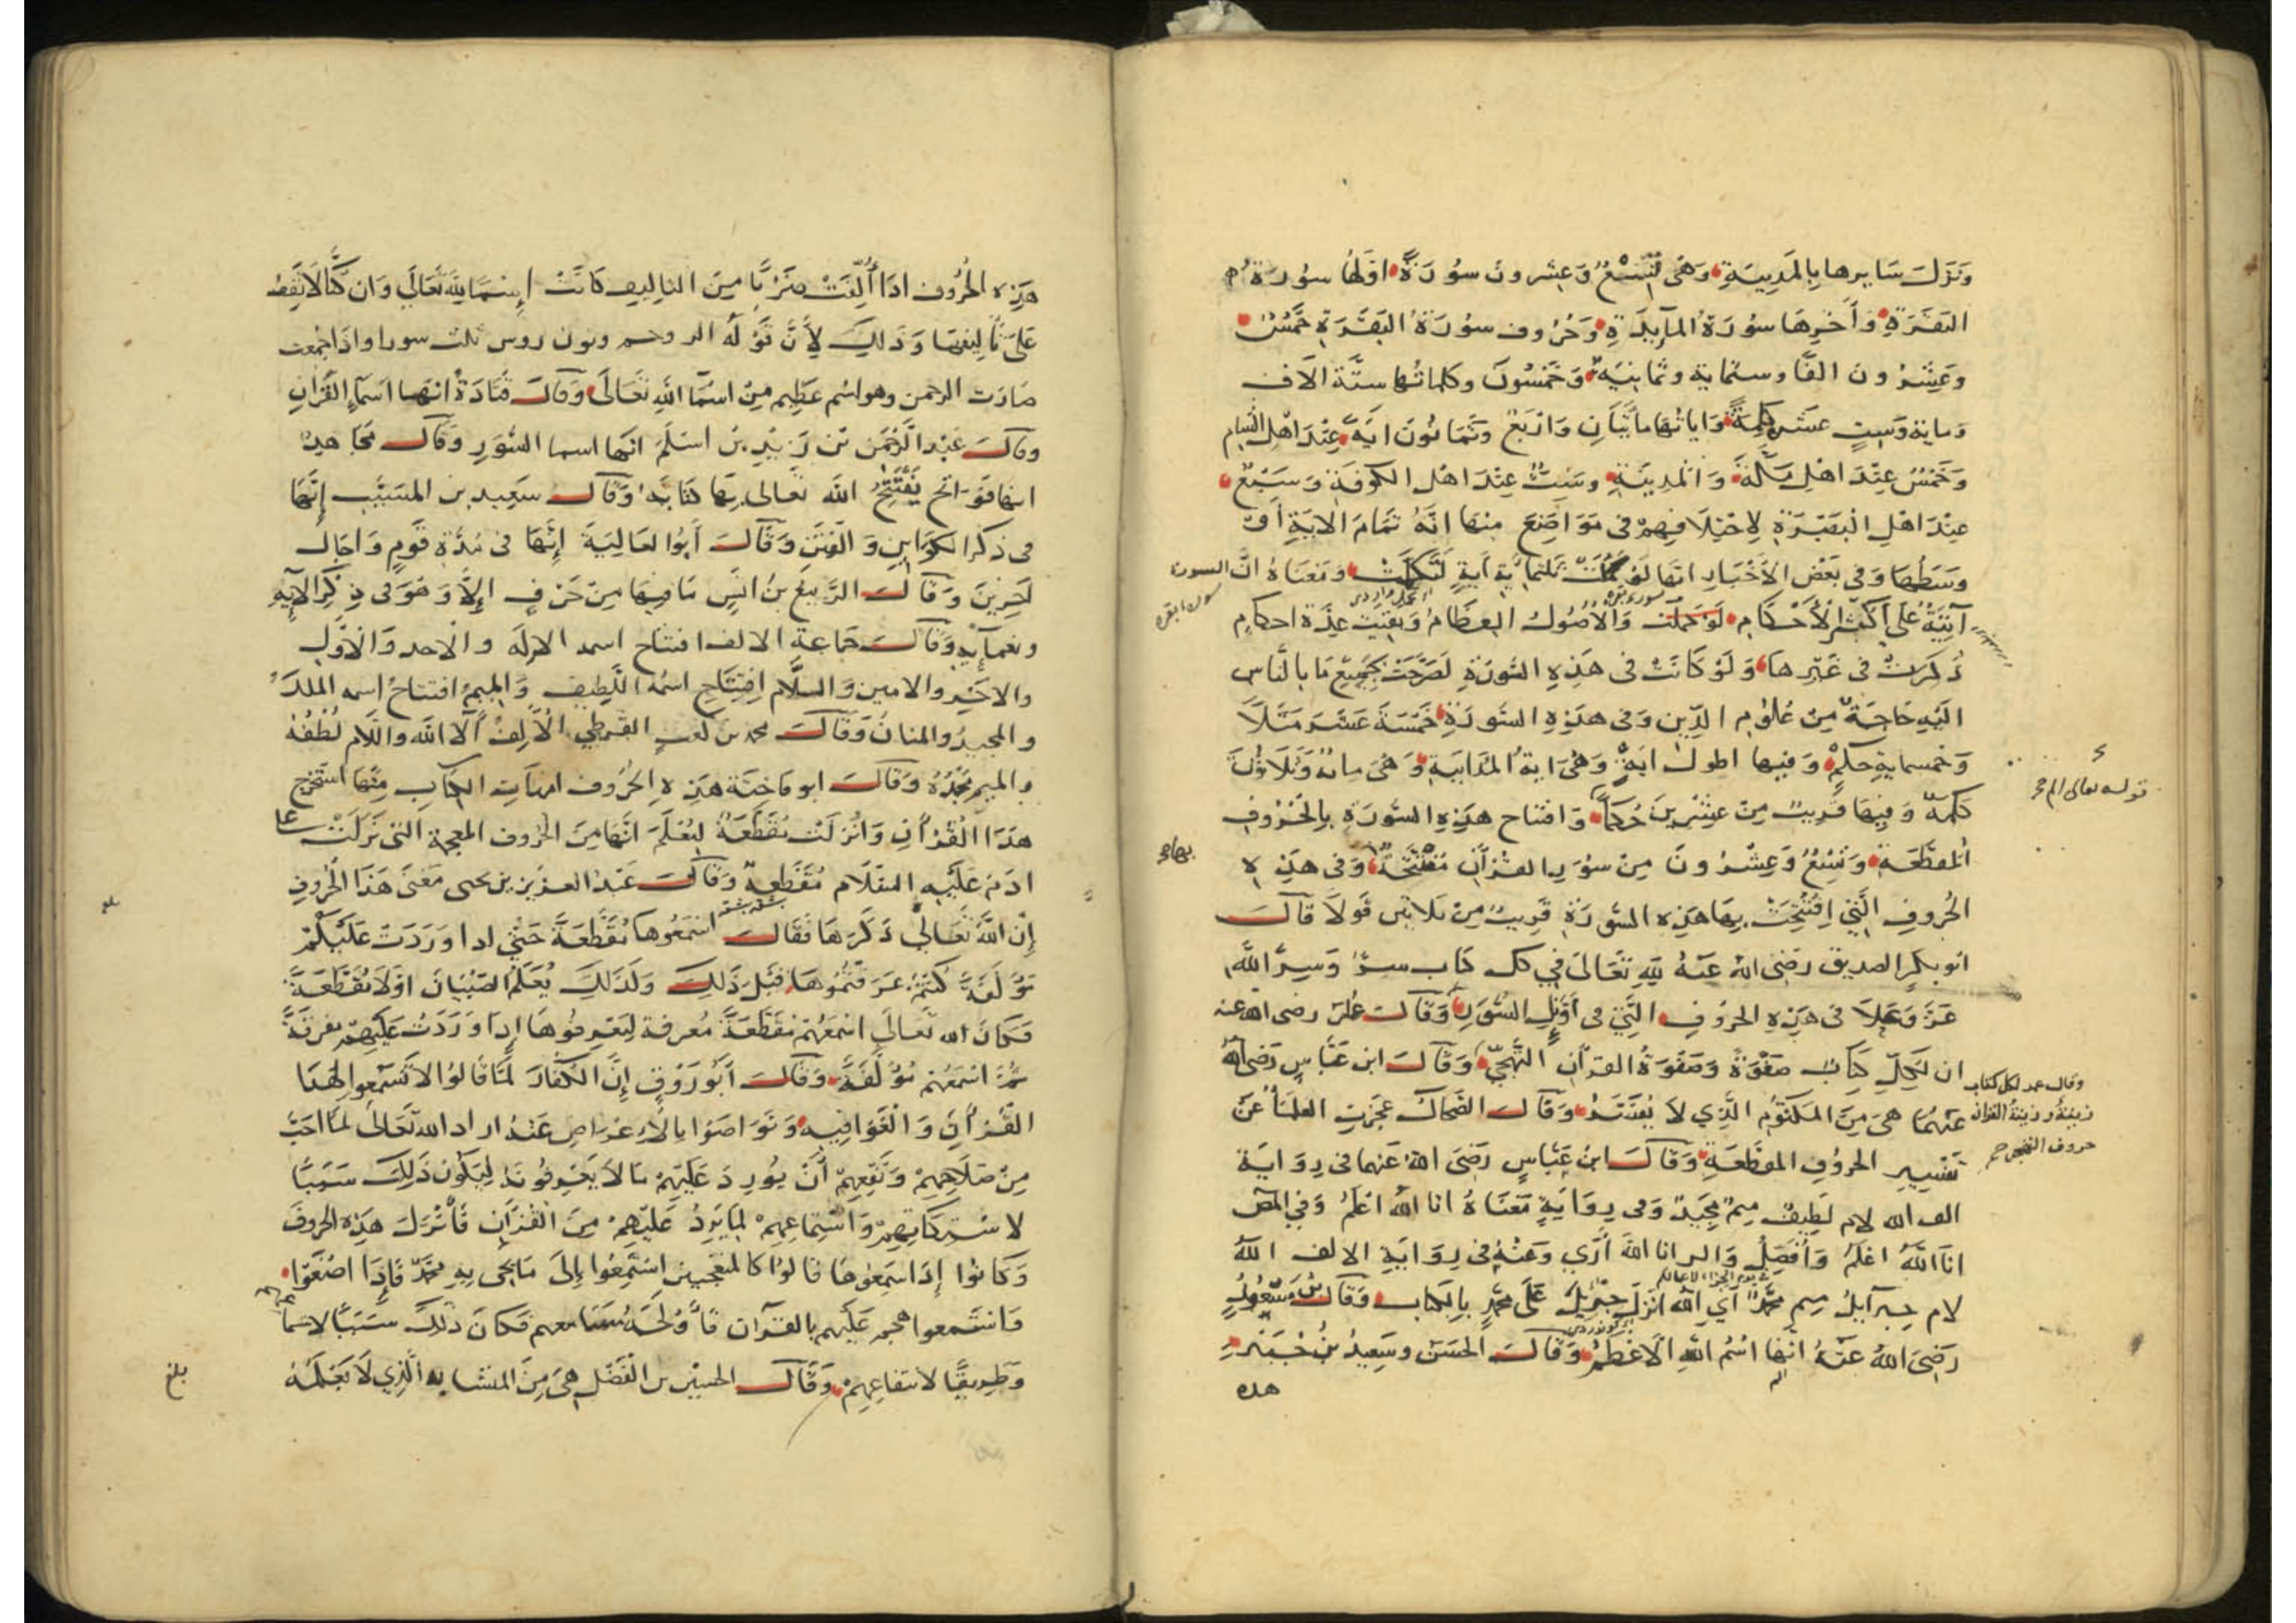 ونزل سايرها بالمدينة وهي تسع وعشرون سورة اولها سورة
البقرة وآخرها سورة المايدة وحروف سورة البقرة خمس
وعشرون الفا وستماية وثمانية وخمسون وكلماتها ستة الاف
وماية وست عشر كلمة واياتها مأتان واربع وثمانون اية عند اهل الشام
وخمس عند اهل مكة والمدينة وست عند اهل الكوفة وسبع
عند اهل البصرة لاختلافهم في مواضع منها انه تمام الاية او
وسطها وفي بعض الاخبار انها لو تمت ثلثماية آية لتكلمت ومعناه ان السورة
آتية على أكثر الأحكام لو جملت والاصول العظام وبقيت عدة احكام
ذكرت في غيرها ولو كانت في هذه السورة لصرحت بجميع ما بالناس
اليه حاجة من علوم الدين وفي هذه السورة خمسة عشر مثلا
وخمسماية حكم وفيها اطول اية وهي اية المداينة وهي ماية وثلاثون
كلمة وفيها قريب من عشرين حكما وافتتاح هذه السورة بالحروف
المقطعة وتسع وعشرون من سور القرآن مفتتحة وفي هذه
الحروف التي افتتحت بها هذه السورة قريب من ثلاثين قولا قال
ابو بكر الصديق رضي الله عنه لله تعالى في كل كتاب سر وسر الله
عز وجل في هذه الحروف التي في أوئل السور وقال علي رضي الله عنه
ان لكل كتاب صفوة وصفوة القرآن التهجي وقال ابن عباس رضي الله
عنهما هي من المكتوم الذي لا يفسر وقال الضحاك عجزت العلماء عن
تفسير الحروف المقطعة وقال ابن عباس رضي الله عنهما في رواية
الف الله لام لطيف ميم مجيد وفي رواية معناه انا الله اعلم وفي المص
انا الله اعلم وأفصل والر انا الله أرى وعنه في رواية الالف الله
لام جبرآيل ميم محمد أي الله انزل جبريل على محمد بالكتاب وقال ابن مسعود
رضي الله عنه انها اسم الله الاعظم وقال الحسن وسعيد بن جبير
هذه
قوله تعالى الم
وقال عمر لكل كتاب
زينة وزينة القران
حروف التهجي
هذه الحروف اذا ألفت ضربا من التاليف كانت إسما لله تعالى وان كنا لا نقف
على تأليفها وذلك لأن قوله الر وحم ونون روس ثلث سور اذا جمعت
صارت الرحمن وهو اسم عظيم من اسماء الله تعالى وقال قتادة انها اسماء القران
وقال عبد الرحمن بن زيد بن اسلم انها اسما السور وقال مجاهد
انها فواتح يفتتح الله تعالى بها كتابه وقال سعيد بن المسيب إنها
في ذكر الكواين والفتن وقال أبو العالية إنها في مدة قوم واجال
آخرين وقال الربيع بن انس ما فيها من حرف إلا وهو في ذكر آلايه
ونعمآيه وقال جماعة الالف افتتاح اسمه الاله والاحد والاول
والاخر والامين واللام إفتتاح اسمه اللطيف والميم افتتاح إسمه الملك
والمجيد والمنان وقال محمد بن كعب القرظي الألف آلا الله واللام لطفه
والميم مجده وقال ابو فاختة هذه الحروف امهات الكتاب منها استخرج
هذا القرأن وانزلت مقطعة ليعلم انها من الحروف المعجمة التي نزلت على
ادم عليه السلام مقطعة وقال عبد العزيز بن يحيى معنى هذا الحروف
إن الله تعالى ذكرها فقال اسمعوها مقطعة حتى اذا وردت عليكم
مؤلفة كنتم عرفتموها قبل ذلك ولذلك يعلم الصبيان اولا مقطعة
فكان الله تعالى اسمعهم مقطعة معرفة ليعرفوها إذا وردت عليهم مفرقة
ثم اسمعهم مؤلفة وقال أبو روق إن الكفار لما قالوا لا تسمعوا لهذا
القرأن والغوا فيه وتواصوا بالاعراض عنه اراد الله تعالى لما احب
من صلاحهم ونفعهم أن يورد عليهم ما لا يعرفونه ليكون ذلك سببا
لاستركاتهم واستماعهم لما يرد عليهم من القرآن فأنزل هذه الحروف
وكانوا إذا سمعوها قالوا كالمتعجبين استمعوا إلى ما يجئ به محمد فإذا اصغوا
واستمعوا هجم عليهم بالقرآن فأولجه مسامعهم فكان ذلك سببا لاستماعهم
وطريقا لانتفاعهم وقال الحسين بن الفضل هي من المتشابه الذي لا يعلمه
بلغ